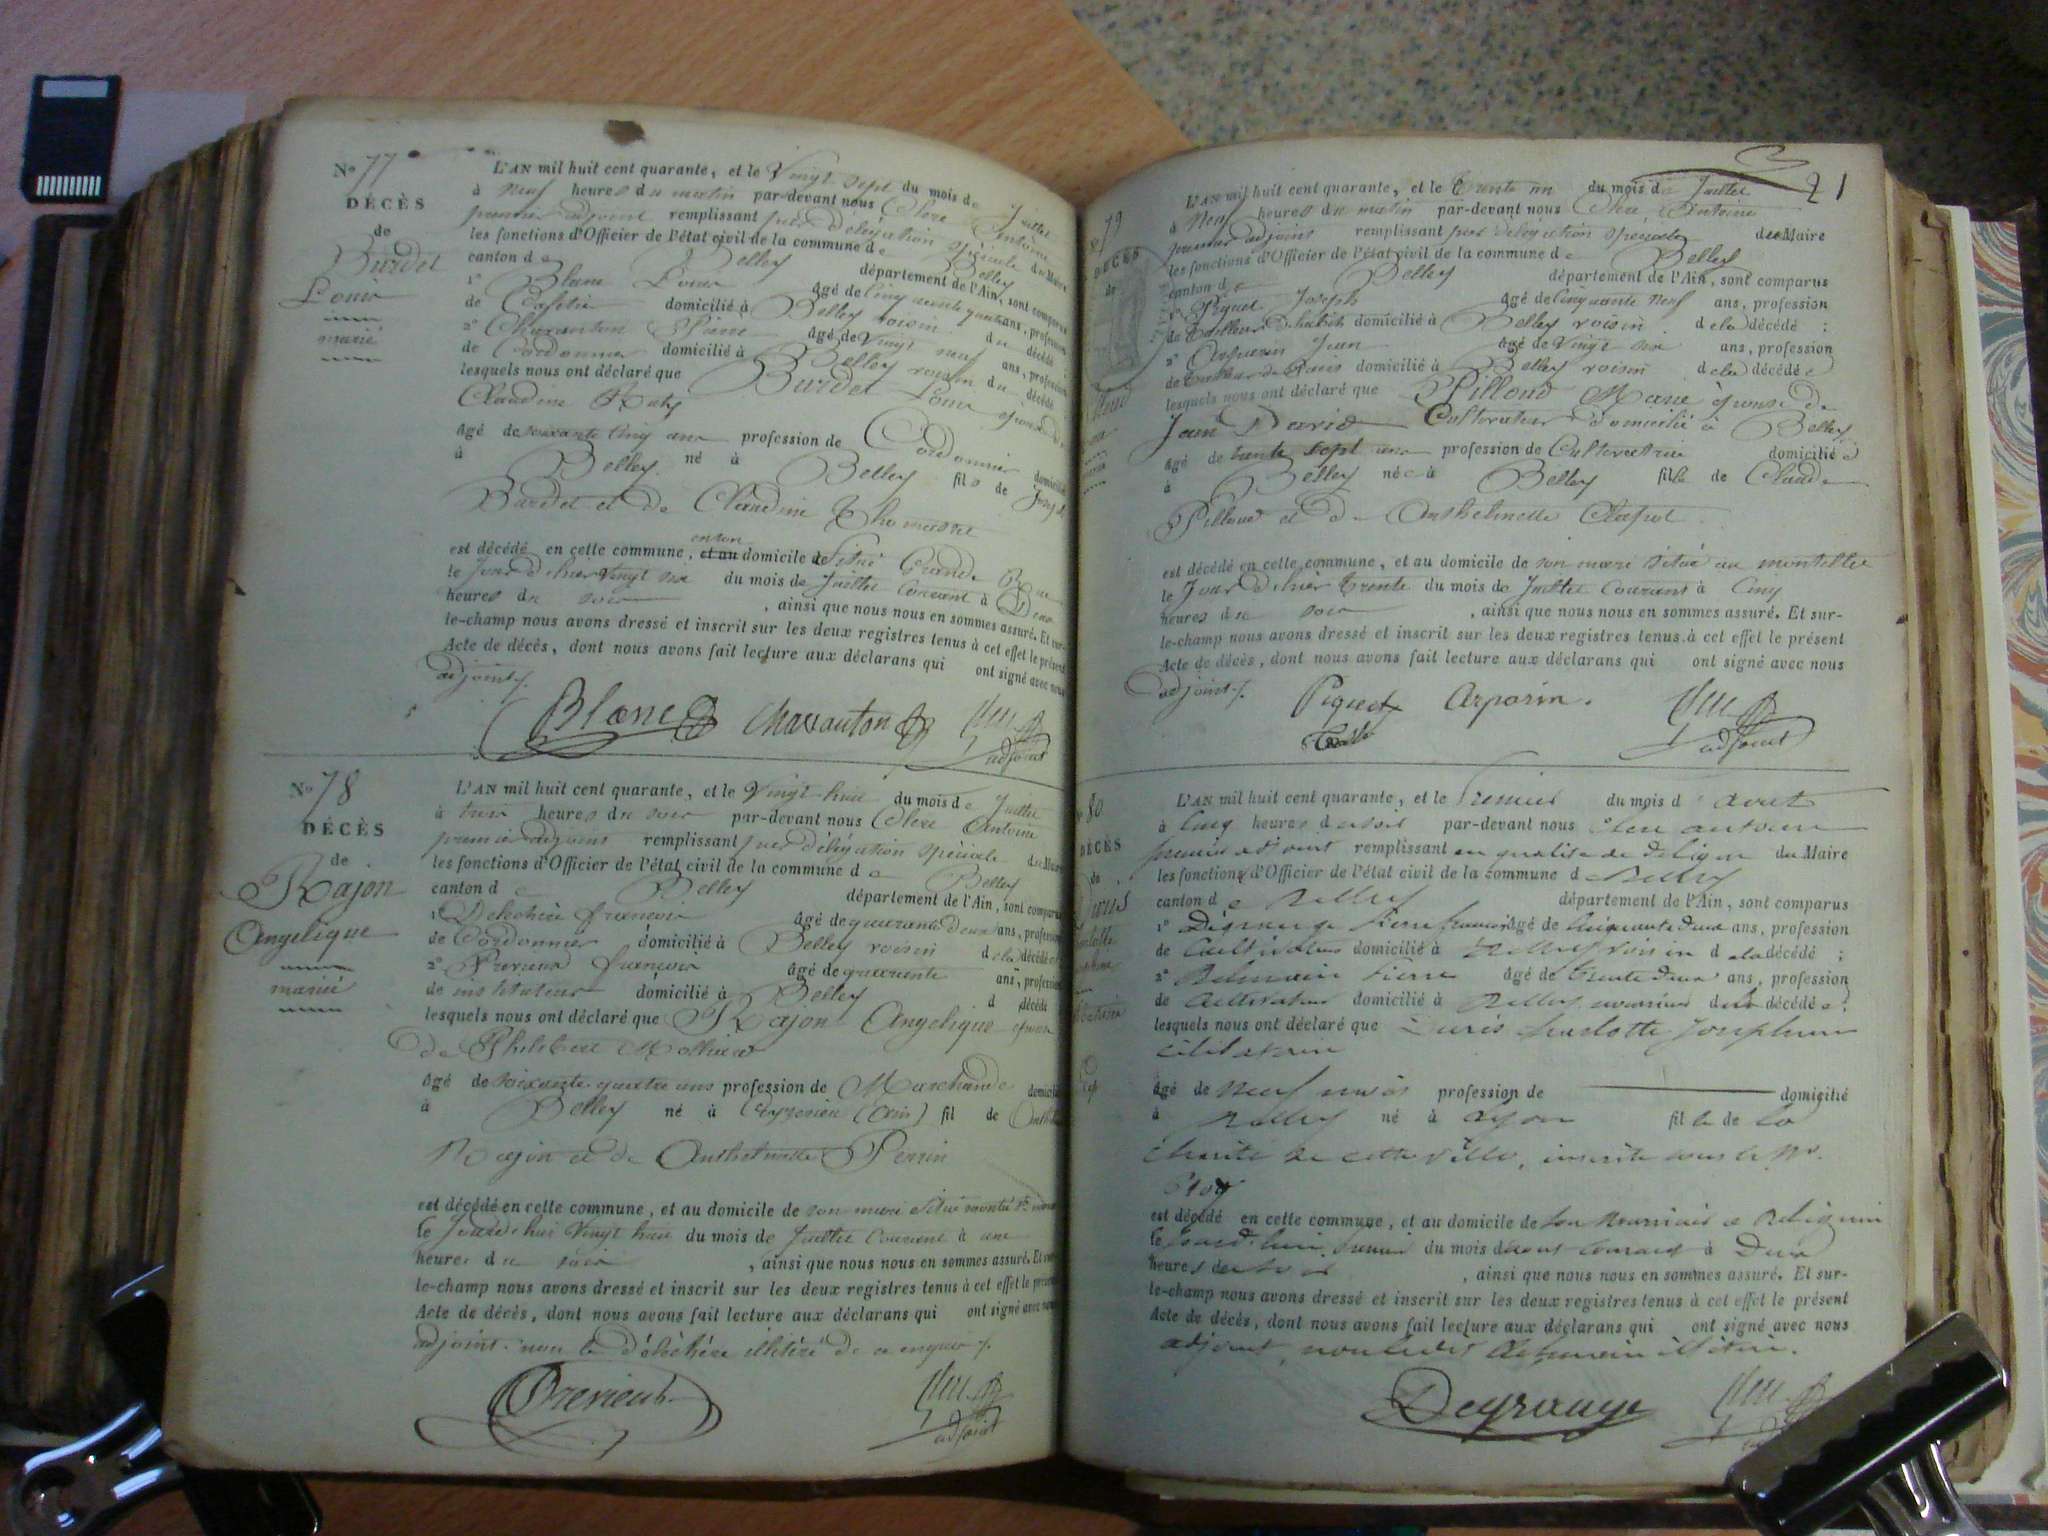 No 77
DÉCÈS
de
Burdet
Louis
marié
L'AN mil huit cent quarante, et le Vingt sept du mois de Juillet
à Neuf heures du matin par-devant nous Clerc Antoine
premier adjoint remplissant par délégation spéciale du Maire
les fonctions d'Officier de l'état civil de la commune de Belley
canton de Belley département de l'Ain, sont comparus
1° Blanc Louis âgé de Cinquante quatre ans, profession
de Cafetier domicilié à Belley voisin du décédé ;
2° Charanton Pierre âgé de vingt neuf ans, profession
de Cordonnier domicilié à Belley voisin du décédé
lesquels nous ont déclaré que Burdet Louis époux de
Claudine
âgé de soixante cinq ans profession de Cordonnier domicilié
à Belley né à Belley fils de Joseph
Burdet et de Claudine Thomasset
est décédé en cette commune, et au domicile de situé Grande Rue
le Jour d'hier vingt six du mois de Juillet Courant à Deux
heures du soir, ainsi que nous nous en sommes assuré. Et sur-
le-champ nous avons dressé et inscrit sur les deux registres tenus à cet effet le présent
Acte de décès, dont nous avons fait lecture aux déclarans qui ont signé avec nous
adjoint.
Blanc Charanton adjoint
No 78
DÉCÈS
de
Rajon
Angelique
mariée
L'AN mil huit cent quarante, et le Vingt-huit du mois de Juillet
à trois heures du soir par-devant nous Clerc Antoine
premier adjoint remplissant par délégation spéciale du Maire
les fonctions d'Officier de l'état civil de la commune de Belley
canton de Belley département de l'Ain, sont comparus
1° françois âgé de quarante deux ans, profession
de Cordonnier domicilié à Belley voisin de la décédée
2° Prerieux françois âgé de quarante ans, profession
de instituteur domicilié à Belley d décédé
lesquels nous ont déclaré que Rajon Angelique épouse
de Philibert
âgé de soixante-quatre ans profession de Marchande domicilié
à Belley né à Ceyzerieu (Ain) fil de
Rajon et de Anthelmette Perrin
est décédé en cette commune, et au domicile de son mari situé montée
le Jourd'hui Vingt huit du mois de Juillet Courant à une
heure du soir, ainsi que nous nous en sommes assuré. Et sur-
le-champ nous avons dressé et inscrit sur les deux registres tenus à cet effet le présent
Acte de décès, dont nous avons fait lecture aux déclarans qui ont signé avec nous
adjoint. non le illitéré de ce enquis.
Prerieux adjoint
21
79
DÉCÈS
de
L'AN mil huit cent quarante, et le Trente un du mois de Juillet
à Neuf heures du matin par-devant nous Clerc Antoine
premier adjoint remplissant par délégation spéciale du Maire
les fonctions d'Officier de l'état civil de la commune de Belley
canton de Belley département de l'Ain, sont comparus
1° Piquet Joseph âgé de Cinquante neuf ans, profession
de Tailleur d'habits domicilié à Belley voisin de la décédé ;
2° Arparin Jean âgé de Vingt six ans, profession
de domicilié à Belley voisin de la décédée
lesquels nous ont déclaré que Pilloud Marie épouse de
Jean David Cultivateur domicilié à Belley
âgé de trente sept ans profession de Cultivatrice domicilié
à Belley née à Belley fille de Claude
Pilloud et de Anthelmette
est décédé en cette commune, et au domicile de son mari situé au
le Jour d'hier trente du mois de Juillet Courant à Cinq
heures du soir, ainsi que nous nous en sommes assuré. Et sur-
le-champ nous avons dressé et inscrit sur les deux registres tenus à cet effet le présent
Acte de décès, dont nous avons fait lecture aux déclarans qui ont signé avec nous
adjoint.
Piquet Arparin. adjoint
80
DÉCÈS
de
L'AN mil huit cent quarante, et le Premier du mois d'août
à Cinq heures du soir par-devant nous Clerc antoine
premier adjoint remplissant en qualité de du Maire
les fonctions d'Officier de l'état civil de la commune d Belley
canton de Belley département de l'Ain, sont comparus
1° Pierre françois âgé de Cinquante deux ans, profession
de Cultivateur domicilié à Belley voisin de la décédé ;
2° Pierre âgé de trente deux ans, profession
de Cultivateur domicilié à Belley de la décédée ;
lesquels nous ont déclaré que Charlotte Josephine
célibataire
âgé de Neuf mois profession de domicilié
à Belley né à Lyon fille de la
charité de cette ville, inscrite sous le No.
est décédé en cette commune, et au domicile de son
le Jourd'hui premier du mois d'aout courant à Deux
heures du soir, ainsi que nous nous en sommes assuré. Et sur-
le-champ nous avons dressé et inscrit sur les deux registres tenus à cet effet le présent
Acte de décès, dont nous avons fait lecture aux déclarans qui ont signé avec nous
adjoint, non ledit
Degrange